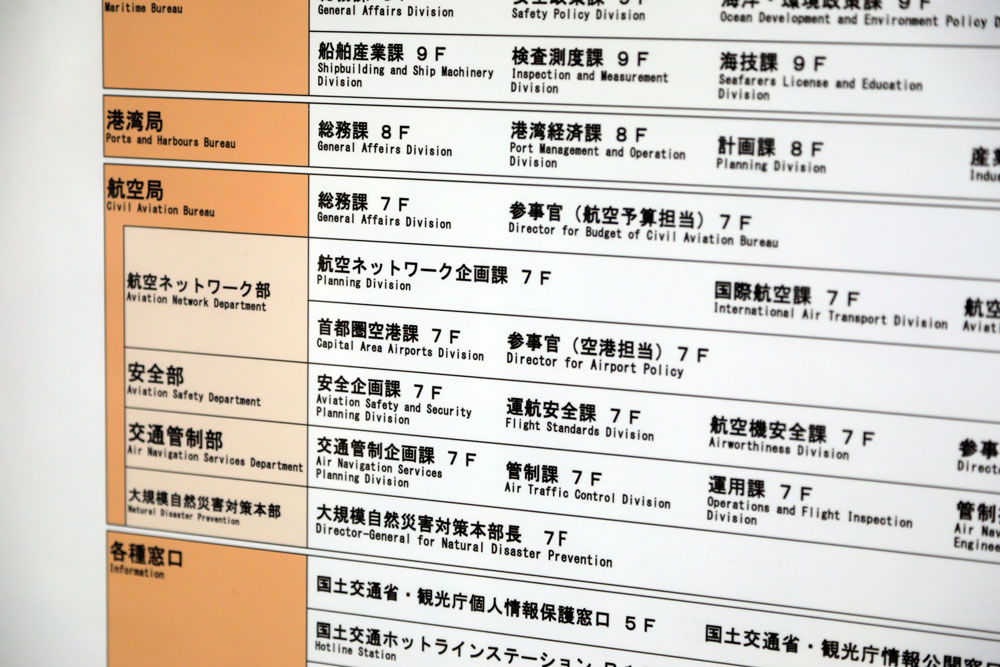 Maritime Bureau
General Affairs Division
Safety Policy Division
海洋・環境政策課 9F
Ocean Development and Environment Policy
船舶産業課 9F
Shipbuilding and Ship Machinery
Division
検査測度課 9F
Inspection and Measurement
Division
海技課 9F
Seafarers License and Education
Division
港湾局
Ports and Harbours Bureau
総務課 8F
General Affeirs Division
港湾経済課 8F
Port Management and Operation
Division
計画課 8F
Planning Division
産業
航空局
Civil Aviation Bureau
総務課 7F
General Affairs Division
参事官（航空予算担当）7F
Director for Budget of Civil Aviation Bureau
航空ネットワーク部
Aviation Network Department
航空ネットワーク企画課 7F
Planning Division
国際航空課 7F
International Air Transport Division
航空
首都圏空港課 7F
Capital Area Airports Division
参事官（空港担当）7F
Director for Airport Policy
安全部
Aviation Safety Department
安全企画課 7F
Aviation Safety and Security
Planning Division
運航安全課 7F
Flight Standards Division
航空機安全課 7F
Airworthiness Division
参事
交通管制部
Air Navigation Services Department
交通管制企画課 7F
Air Navigation Services
Planning Division
管制課 7F
Air Traffic Control Division
運用課 7F
Operations and Flight Inspection
Division
管制
Air Nav
Enginee
大規模自然災害対策本部
Natural Disaster Prevention
大規模自然災害対策本部長 7F
Director-General for Natural Disaster Prevention
各種窓口
Information
国土交通省・観光庁個人情報保護窓口 5F
国土交通省・観光庁情報公開窓
国土交通ホットラインステーション
Hotline Station